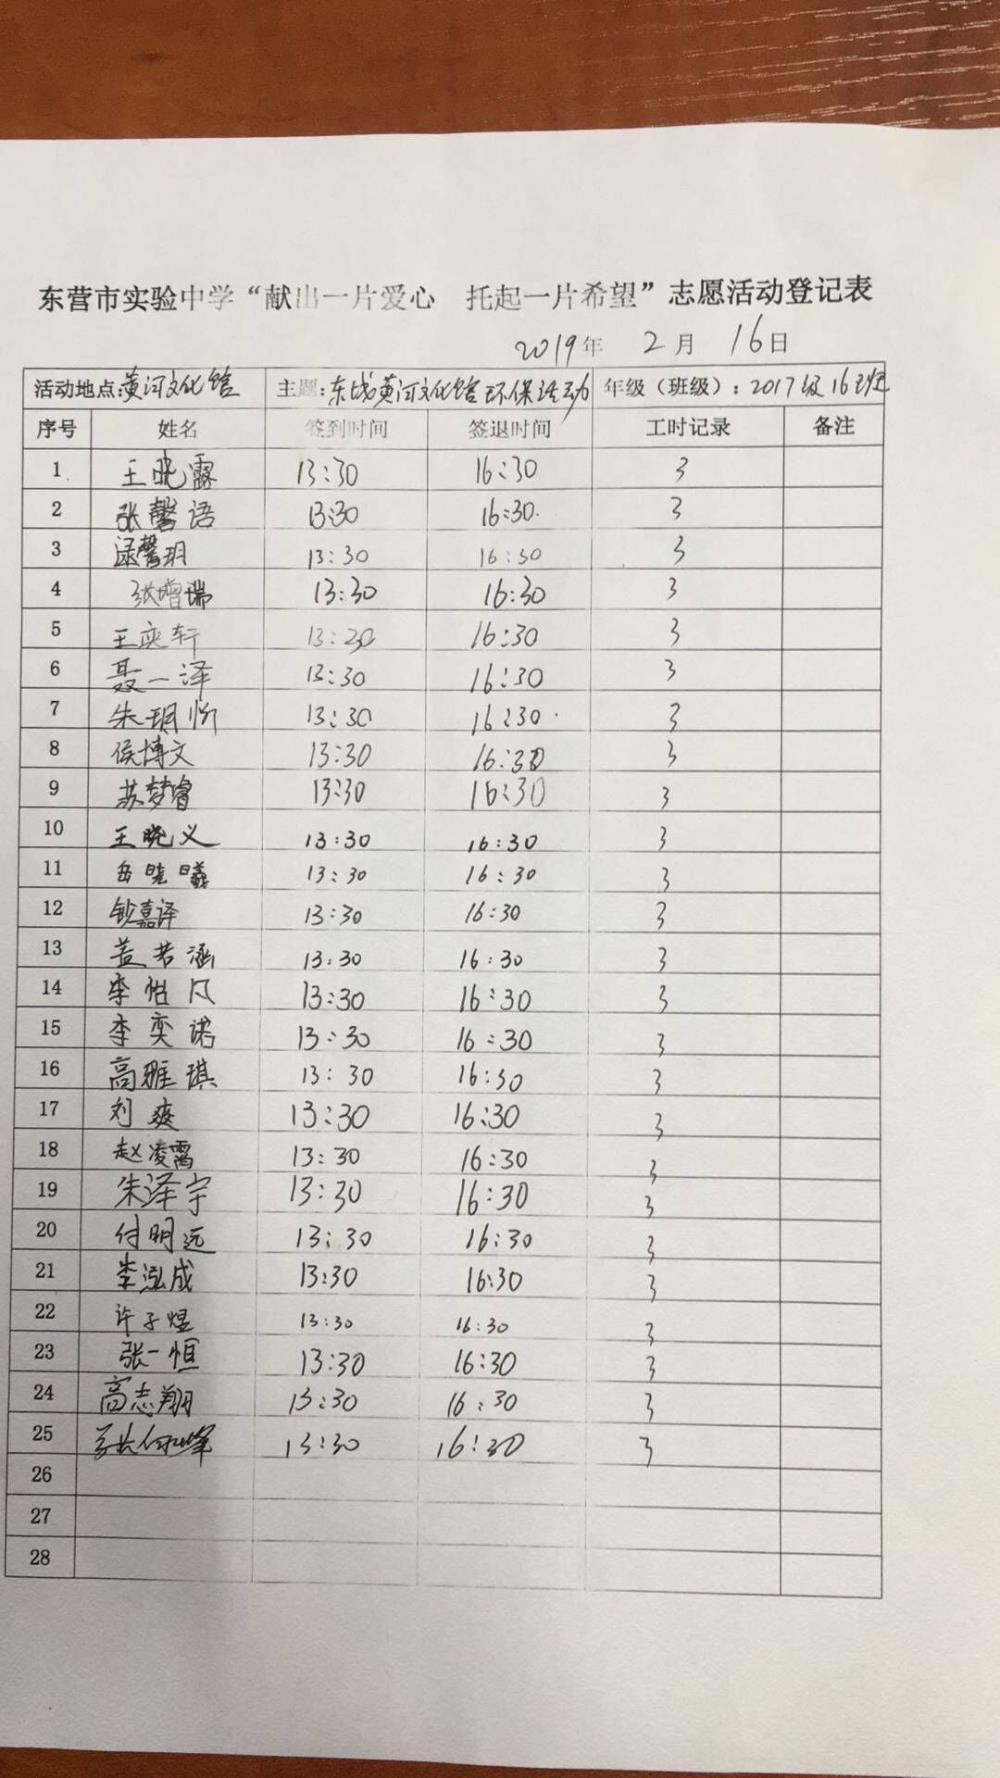 东营市实验中学“献出一片爱心 托起一片希望”志愿活动登记表
2019年 2月 16日
活动地点:黄河文化馆 主题:东城黄河文化馆环保活动 年级（班级）：2017级16班
序号 姓名 签到时间 签退时间 工时记录 备注
1 王晓露 13:30 16:30 3
2 张馨语 13:30 16:30 3
3 逯馨玥 13:30 16:30 3
4 张增瑞 13:30 16:30 3
5 王奕轩 13:30 16:30 3
6 聂一泽 13:30 16:30 3
7 朱玥忻 13:30 16:30 3
8 侯博文 13:30 16:30 3
9 苏梦睿 13:30 16:30 3
10 王晓义 13:30 16:30 3
11 岳晓曦 13:30 16:30 3
12 钞嘉译 13:30 16:30 3
13 盖若涵 13:30 16:30 3
14 李恺凡 13:30 16:30 3
15 李奕诺 13:30 16:30 3
16 高雅琪 13:30 16:30 3
17 刘爽 13:30 16:30 3
18 赵凌霄 13:30 16:30 3
19 朱泽宇 13:30 16:30 3
20 付明远 13:30 16:30 3
21 李泓成 13:30 16:30 3
22 许子煜 13:30 16:30 3
23 张一恒 13:30 16:30 3
24 高志翔 13:30 16:30 3
25 13:30 16:30 3
26
27
28